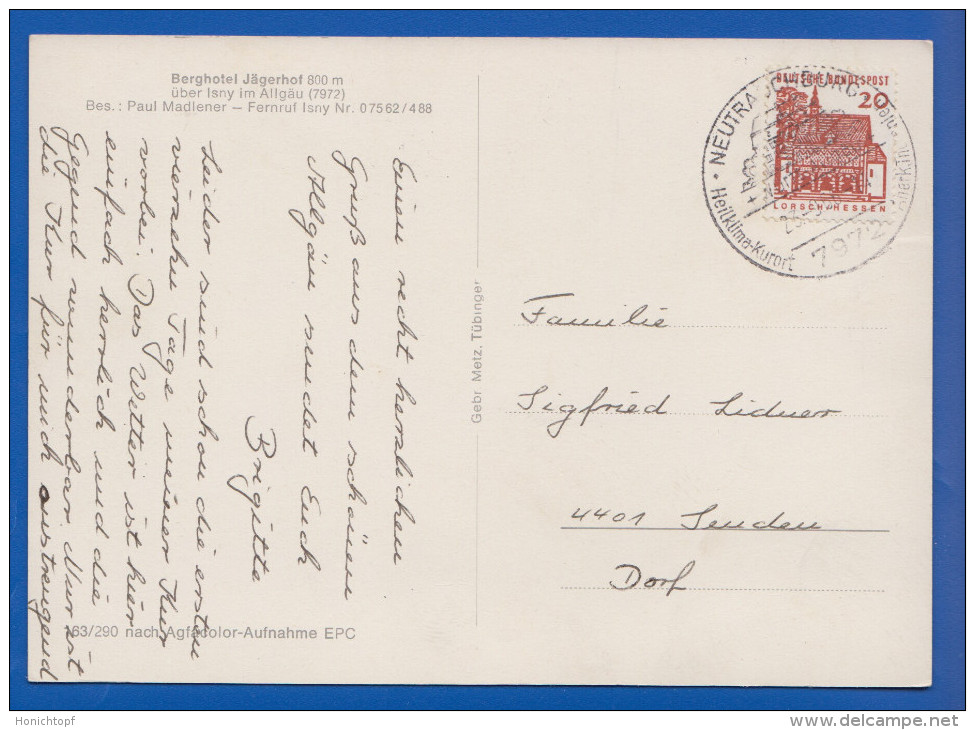 Berghotel Jägerhof 800 m
über Isny im Allgäu (7972)
Bes.: Paul Madlener – Fernruf Isny Nr. 07562/488
Einen recht herzlichen
Gruß aus dem schönen
Allgäu sendet Euch
Brigitte
Leider sind schon die ersten
vierzehn Tage meiner Kur
vorbei. Das Wetter ist hier
einfach herrlich und die
Gegend wunderbar. Nur ist
die Kur für mich anstrengend
163/290 nach Agfacolor-Aufnahme EPC
Gebr Metz, Tübingen
NEUTRAUCHBURG
Heilklima-Kurort
7972
DEUTSCHE BUNDESPOST
20
LORSCH/HESSEN
Familie
Sigfried Lidner
4401 Senden
Dorf
Honichtopf
www.delcampe.net